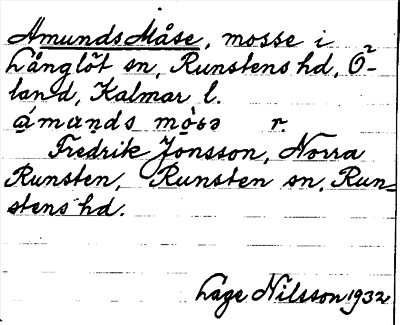 Amunds Måse, mosse i
Långlöt sn, Runstens hd, Ö-
land, Kalmar l.
ámands mò̀sə r.
Fredrik Jonsson, Norra
Runsten, Runsten sn, Run-
stens hd.
Lage Nilsson 1932